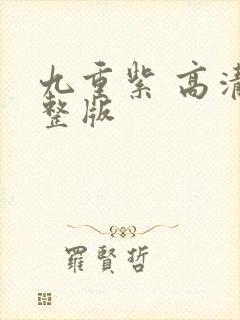 九重紫 高清
整版
羅賢哲